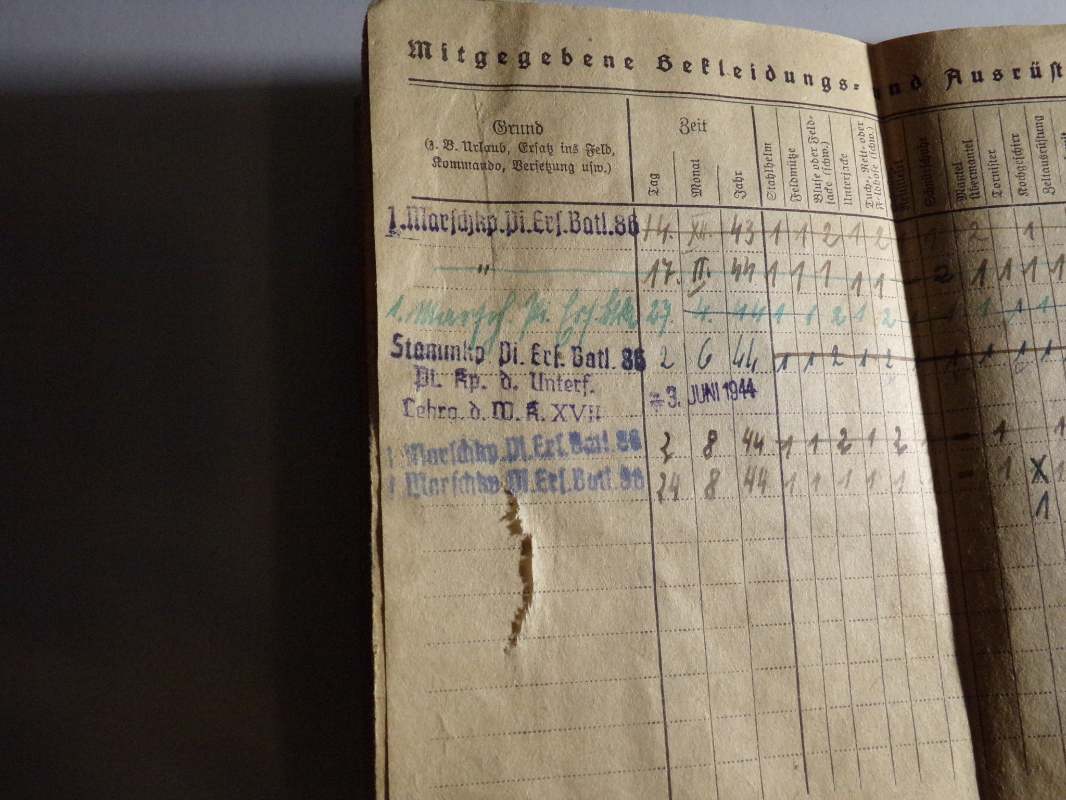 Mitgegebene Bekleidungs- und Ausrüst
Grund
(z. B. Urlaub, Ersatz ins Feld,
Kommando, Versetzung usw.)
Zeit
Tag
Monat
Jahr
Stahlhelm
Feldmütze
Bluse oder Feld-
jacke (schw.)
Unterjacke
Tuch-, Reit- oder
Feldhose (schw.)
Mantel
Übermantel
Tornister
Kochgeschirr
Zeltausrüstung
1. Marschkp. Pi. Ers. Batl. 86 14. XII. 43 1 1 2 1 2 1 2 1
" 17. II. 44 1 1 1 1 1 2 1 1 1 1
1. Marsch Pi. Ers. 27. 4. 44 1 1 2 1 2 1 1 1 1
Stammkp Pi. Ers. Batl. 86 2 6 44 1 1 2 1 2 1 1 1 1
Pi. Kp. d. Unterf.
Lehrg. d. W. K. XVII
3. JUNI 1944
1 Marschkp. Pi. Ers. Batl. 86 2 8 44 1 1 2 1 2 - 1 1
1 Marschkp. Pi. Ers. Batl. 86 24 8 44 1 1 1 1 1 - 1 X 1
1